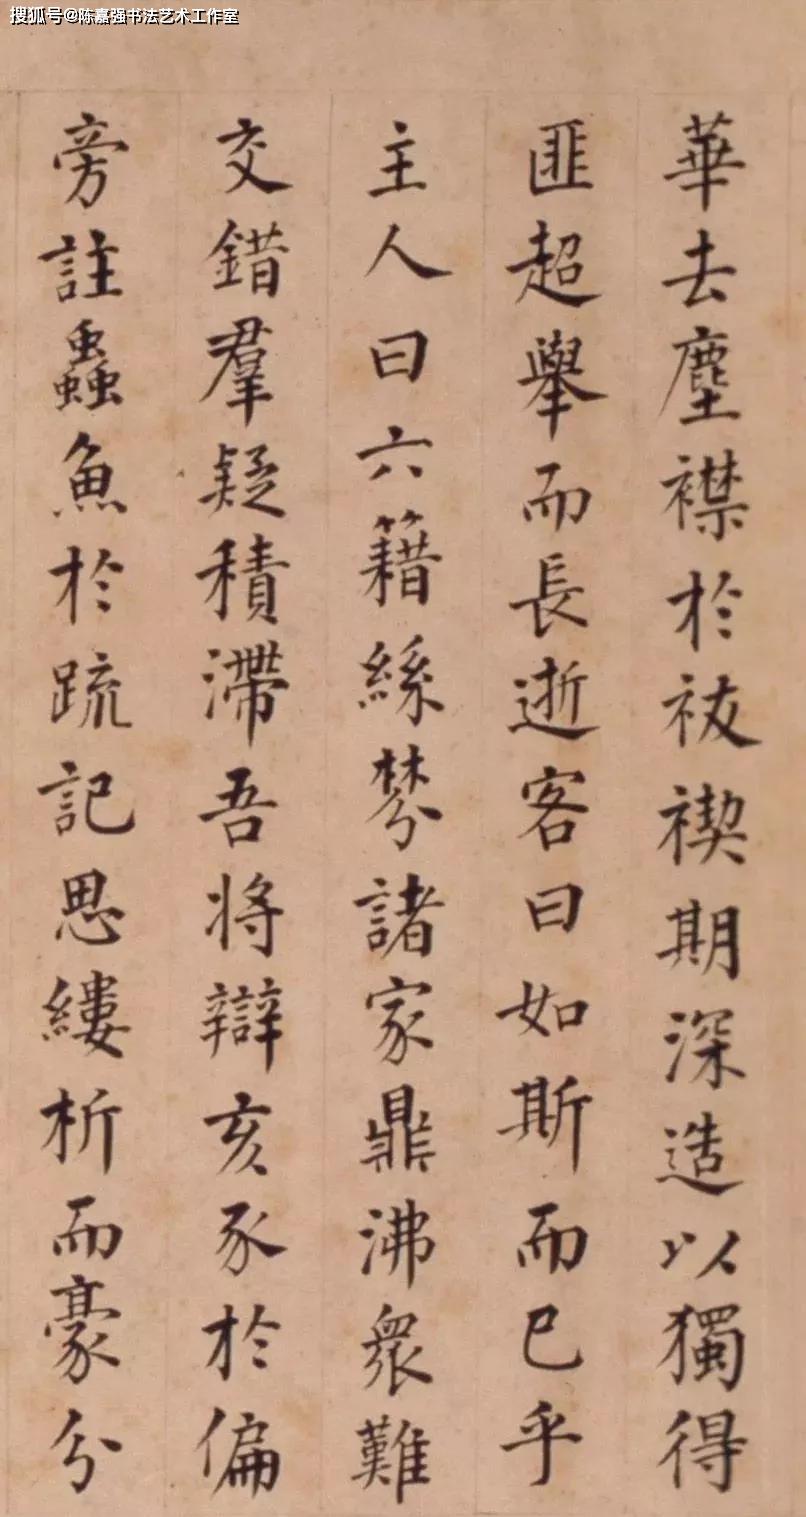 搜狐号@陈嘉强书法艺术工作室
華去塵襟於祓禊期深造以獨得
匪超舉而長逝客曰如斯而已乎
主人曰六籍絲棼諸家鼎沸衆難
交錯羣疑積滯吾將辯亥豕於偏
旁註蟲魚於疏記思縷析而豪分